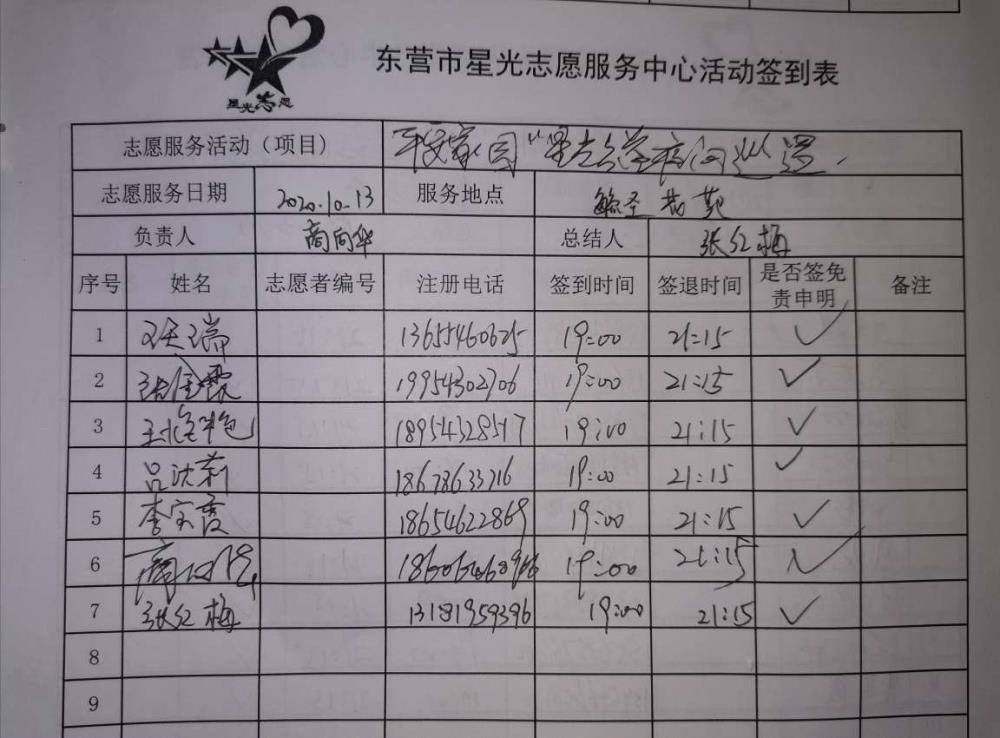 星光志愿
东营市星光志愿服务中心活动签到表
志愿服务活动（项目） 平安家园"星
志愿服务日期 2020.10.13 服务地点
负责人 商向华 总结人 张红梅
序号 姓名 志愿者编号 注册电话 签到时间 签退时间 是否签免责申明 备注
1 瑞 13655460625 19:00 21:15 ✓
2 张霞 19954302706 19:00 21:15 ✓
3 18954328517 19:00 21:15 ✓
4 吕 莉 18678633716 19:00 21:15 ✓
5 李宝霞 18654622869 19:00 21:15 ✓
6 19:00 21:15 ✓
7 张红梅 13181959396 19:00 21:15 ✓
8
9